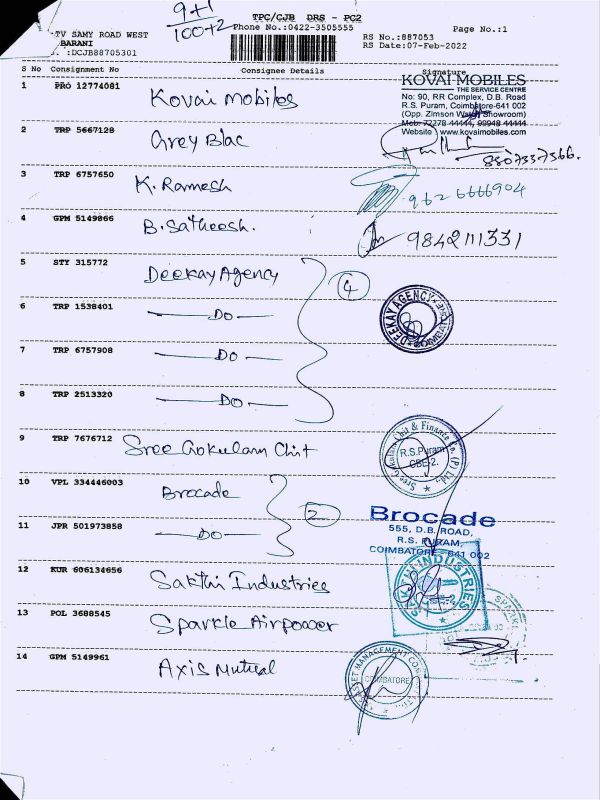 9+1
100+2
TPC/CJB DRS - PC2
Phone No.:0422-3505555
Page No.:1
TV SAMY ROAD WEST
BARANI
:DCJB88705301
RS No.:887053
RS Date:07-Feb-2022
S No Consignment No Consignee Details Signature
1 PRO 12774081 Kovai Mobiles
KOVAI MOBILES
THE SERVICE CENTRE
No: 90, RR Complex, D.B. Road
R.S. Puram, Coimbatore-641 002
(Opp. Zimson Watch Showroom)
Mob: 72278 44444, 99948 44444
Website : www.kovaimobiles.com
2 TRP 5667128 Grey Blac
8807337566.
3 TRP 6757650 K. Ramesh 962 6666904
4 GPM 5149866 B. Satheesh. 9842111331
5 STY 315772 Deekay Agency 4
DEEKAY AGENCY
6 TRP 1538401 Do
7 TRP 6757908 Do
8 TRP 2513320 Do
9 TRP 7676712 Sree Gokulam Chit
Sree Gokulam Chit & Finance Co. (P) Ltd.,
R.S.Puram
CBE-2.
10 VPL 334446003 Brocade 2
11 JPR 501973858 Do
Brocade
555, D.B. ROAD,
R.S. PURAM,
COIMBATORE - 641 002
12 KUR 606134656 Sakthi Industries
SAKTHI INDUSTRIES
13 POL 3688545 Sparkle Airpower
SPARKL
14 GPM 5149961 Axis Mutual
ASSET MANAGEMENT CO
COIMBATORE